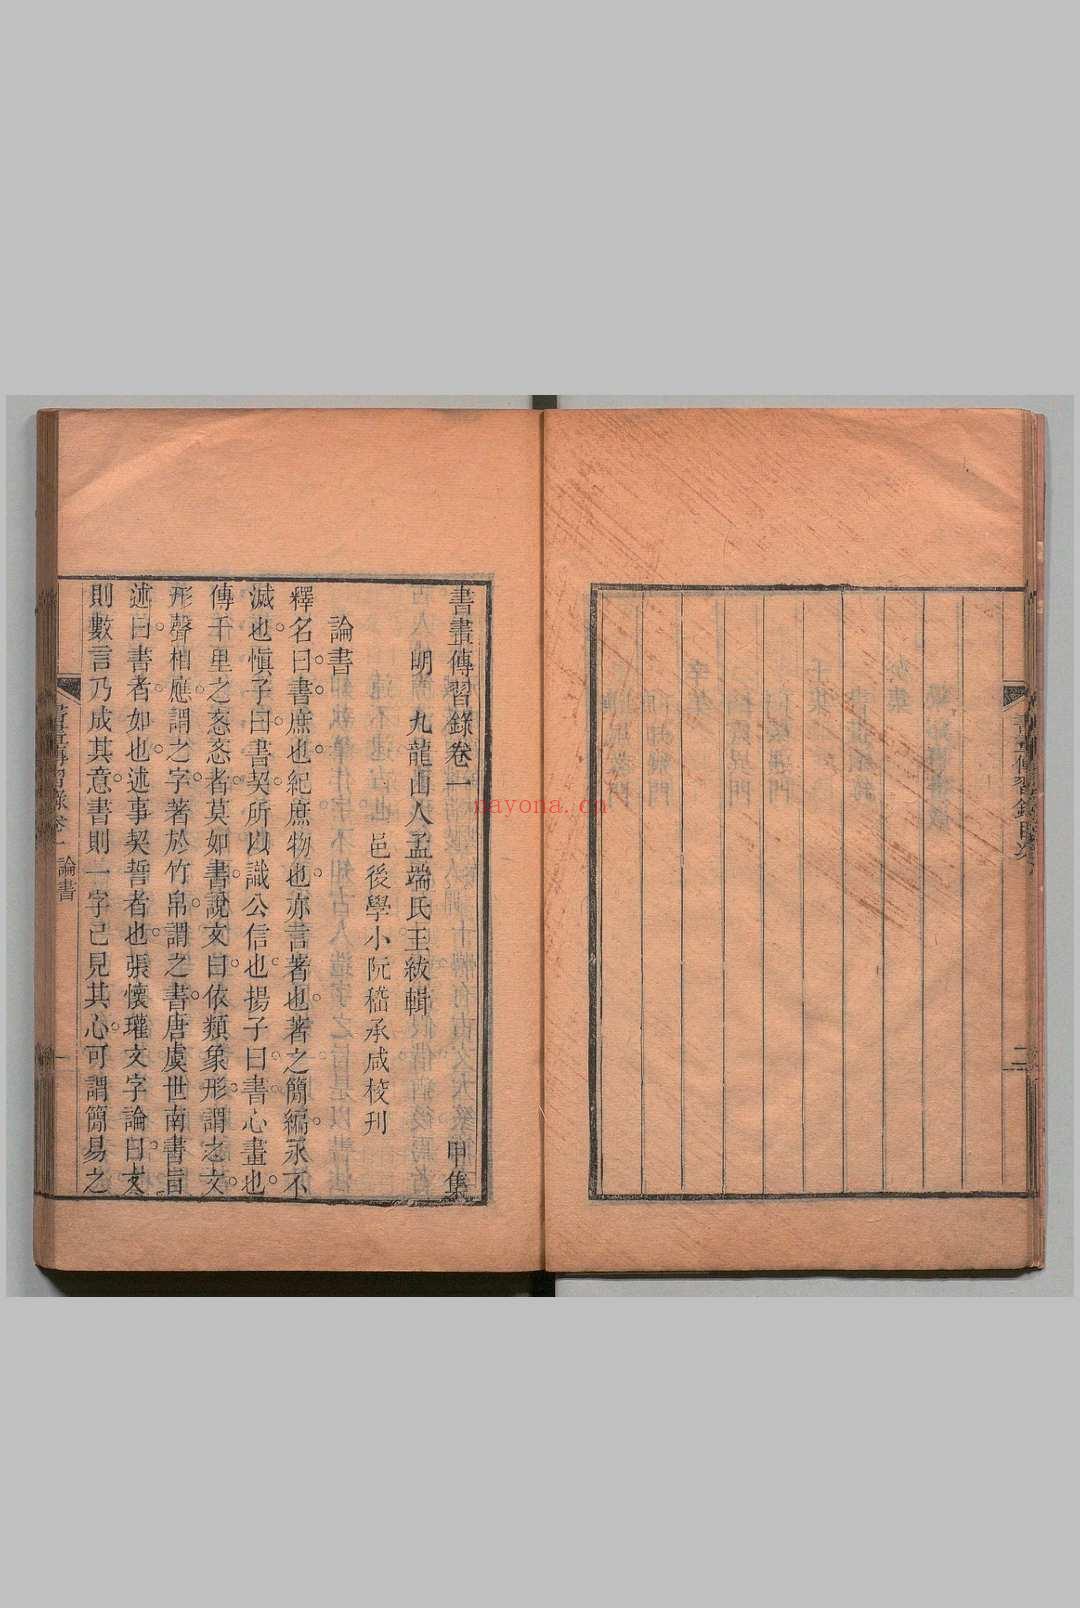 書畫傳習錄目次
二
書畫傳習錄卷一 甲集
明 九龍山人孟端氏王紱輯
邑後學小阮嵇承咸校刊
論書
釋名曰書庶也紀庶物也亦言著也著之簡編永不
滅也愼子曰書契所以識公信也揚子曰書心畫也
傳千里之忞忞者莫如書說文曰依類象形謂之文
形聲相應謂之字著於竹帛謂之書唐虞世南書旨
述曰書者如也述事契誓者也張懷瓘文字論曰文
則數言乃成其意書則一字已見其心可謂簡易之
書畫傳習錄卷一 論書
一
nayona.cn